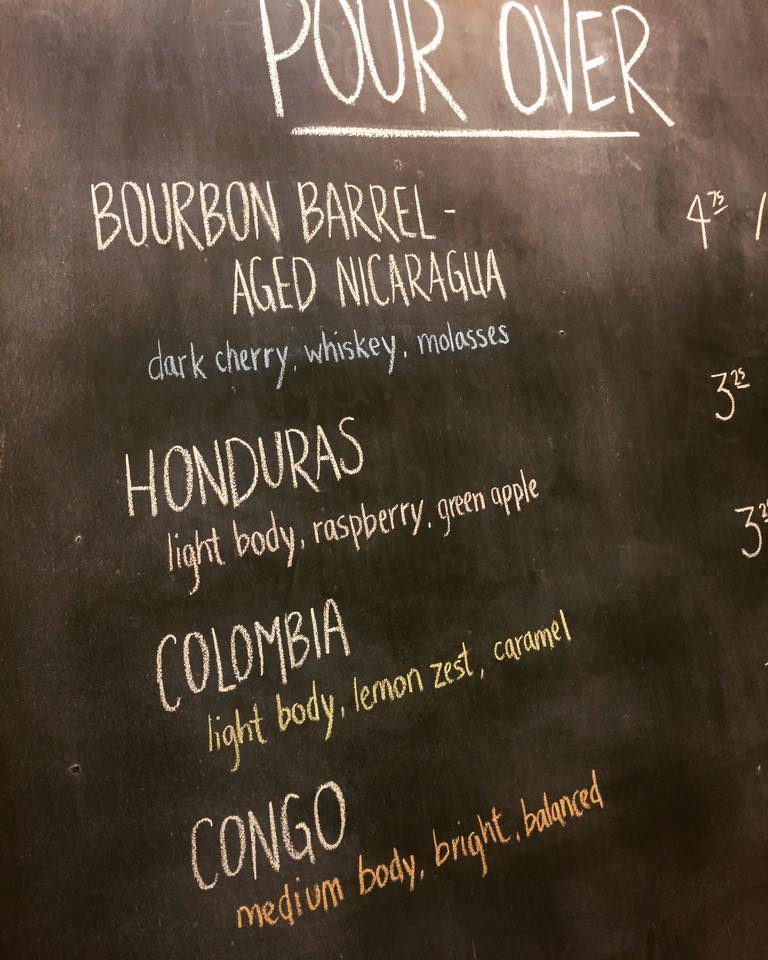 POUR OVER
BOURBON BARREL- 4 75 /
AGED NICARAGUA
dark cherry, whiskey, molasses
HONDURAS 3 25
light body, raspberry, green apple
COLOMBIA 3
light body, lemon zest, caramel
CONGO
medium body, bright, balanced